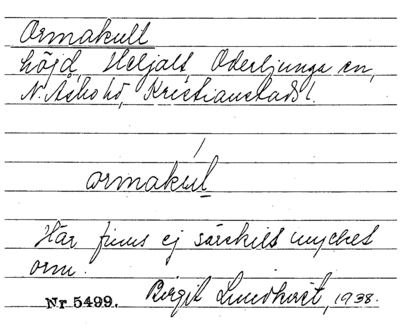 Ormakull
höjd, Heljalt Oderljunga sn,
N. Åsbo hd, Kristianstads l.
ormakul
Här finns ej särskilt mycket
orm.
Nr 5499. Birgit Lindkvist, 1938.